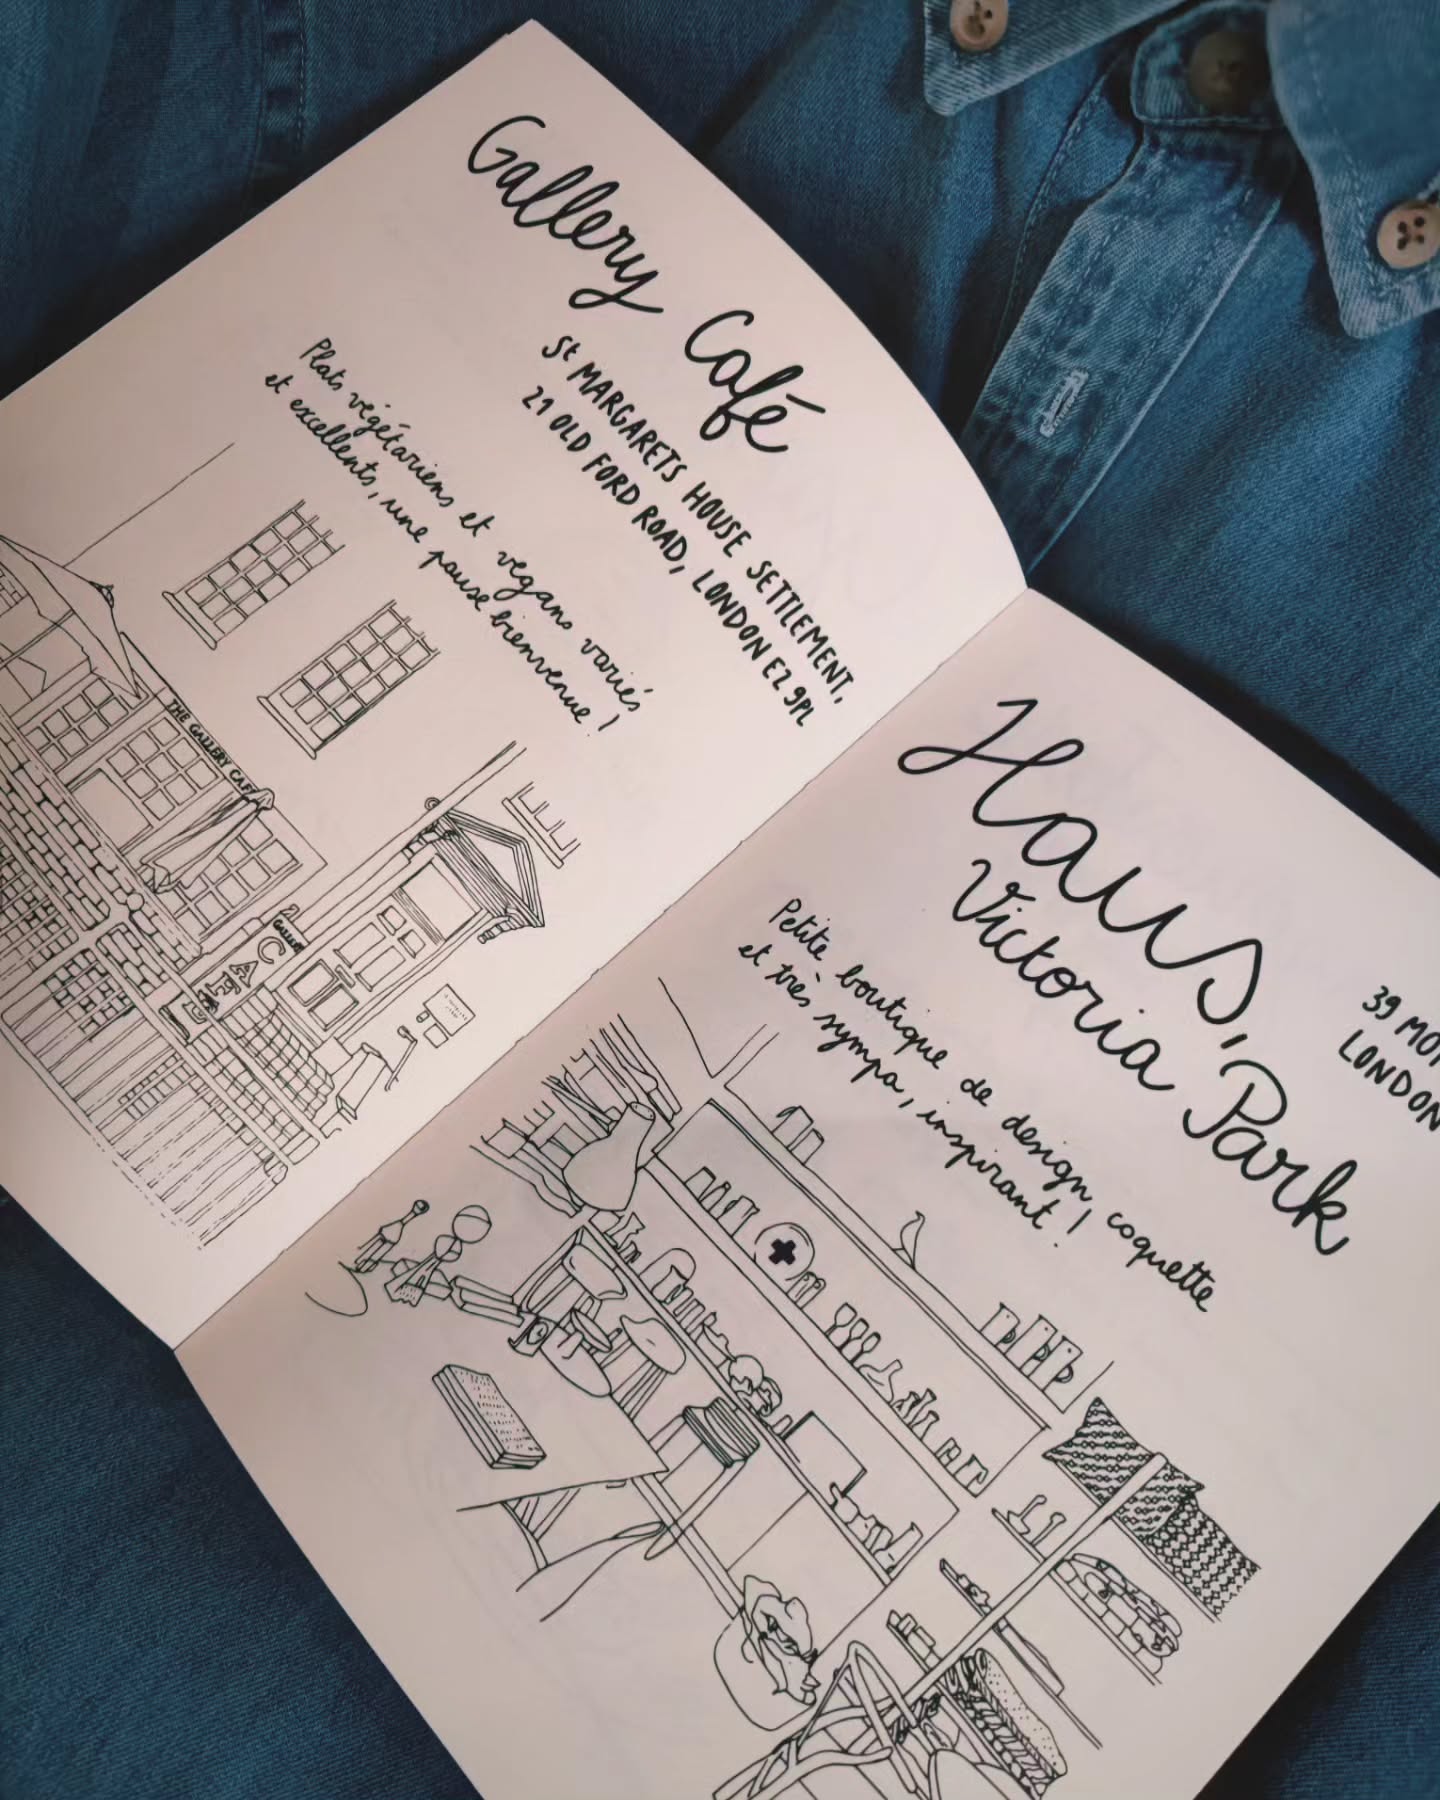 Gallery Café
St MARGARETS HOUSE SETTLEMENT,
21 OLD FORD ROAD, LONDON E2 9PL
Plats végétariens et vegans variés
et excellents, une pause bienvenue !
THE GALLERY CAFE
GALLERY
CAFE
Haus,
Victoria Park
39
LONDON
Petite boutique de design coquette
et très sympa, inspirant !